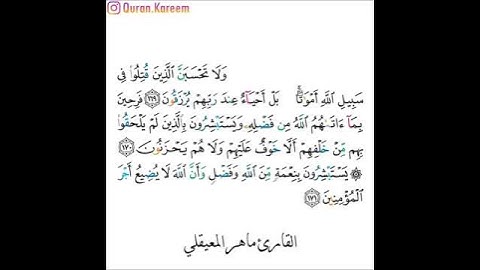 Quran.Kareem
وَلَا تَحْسَبَنَّ ٱلَّذِينَ قُتِلُوا۟ فِى
سَبِيلِ ٱللَّهِ أَمْوَٰتًۢا ۚ بَلْ أَحْيَآءٌ عِندَ رَبِّهِمْ يُرْزَقُونَ ١٦٩ فَرِحِينَ
بِمَآ ءَاتَىٰهُمُ ٱللَّهُ مِن فَضْلِهِۦ وَيَسْتَبْشِرُونَ بِٱلَّذِينَ لَمْ يَلْحَقُوا۟
بِهِم مِّنْ خَلْفِهِمْ أَلَّا خَوْفٌ عَلَيْهِمْ وَلَا هُمْ يَحْزَنُونَ ١٧٠
۞ يَسْتَبْشِرُونَ بِنِعْمَةٍ مِّنَ ٱللَّهِ وَفَضْلٍ وَأَنَّ ٱللَّهَ لَا يُضِيعُ أَجْرَ
ٱلْمُؤْمِنِينَ ١٧١
القارئ ماهر المعيقلي